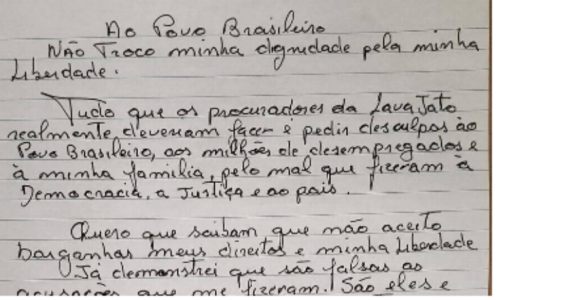 Ao Povo Brasileiro
Não Troco minha dignidade pela minha
Liberdade.
Tudo que os procuradores da Lava Jato
realmente deveriam fazer é pedir desculpas ao
Povo Brasileiro, aos milhões de desempregados e
à minha familia, pelo mal que fizeram à
Democracia, a Justiça e ao pais.
Quero que saibam que não aceito
barganhas meus direitos e minha Liberdade
Já demonstrei que são falsas as
acusações que me fizeram. São eles e